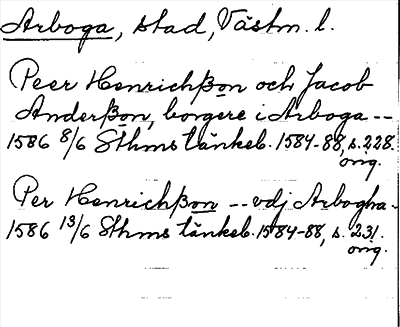 Arboga, stad, Västm. l.
Peer Henrichßon och Jacob
Anderßon, borgere i Arboga --
1586 8/6 Sthms tänkeb. 1584-88, s. 228.
orig.
Per Henrichßon -- vdj Arbogha -
1586 13/6 Sthms tänkeb. 1584-88, s. 231.
orig.